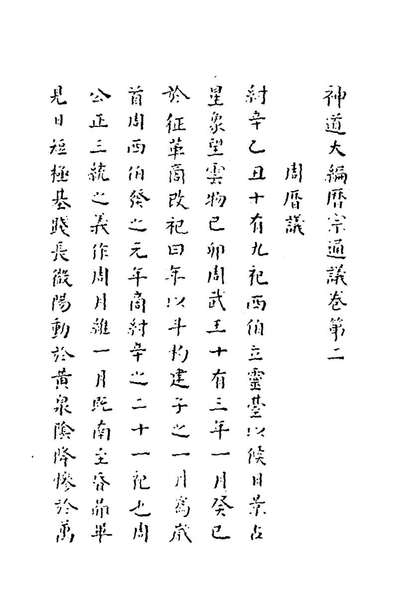 神道大編曆宗通議卷第二
周曆議
紂辛乙丑十有九祀西伯立靈臺以候日景占
星象望雲物己卯周武王十有三年一月癸巳
於征革商改祀曰年以斗杓建子之一月為歲
首周西伯發之元年商紂辛之二十一祀也周
公正三統之義作周月維一月旣南至昏昴畢
見日短極基踐長微陽動於黃泉陰降慘於萬